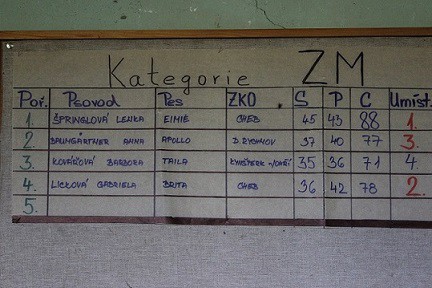 Kategorie ZM
Poř. Psovod Pes ZKO S P C Umíst.
1. ŠPRINGLOVÁ LENKA EIMIE CHEB 45 43 88 1.
2. BAUMGÄRTNER ANNA APOLLO D. RYCHNOV 37 40 77 3.
3. KOVÁŘOVÁ BARBORA TAILA KYNŠPERK n/OHŘÍ 35 36 71 4.
4. LICKOVÁ GABRIELA BRITA CHEB 36 42 78 2.
5.